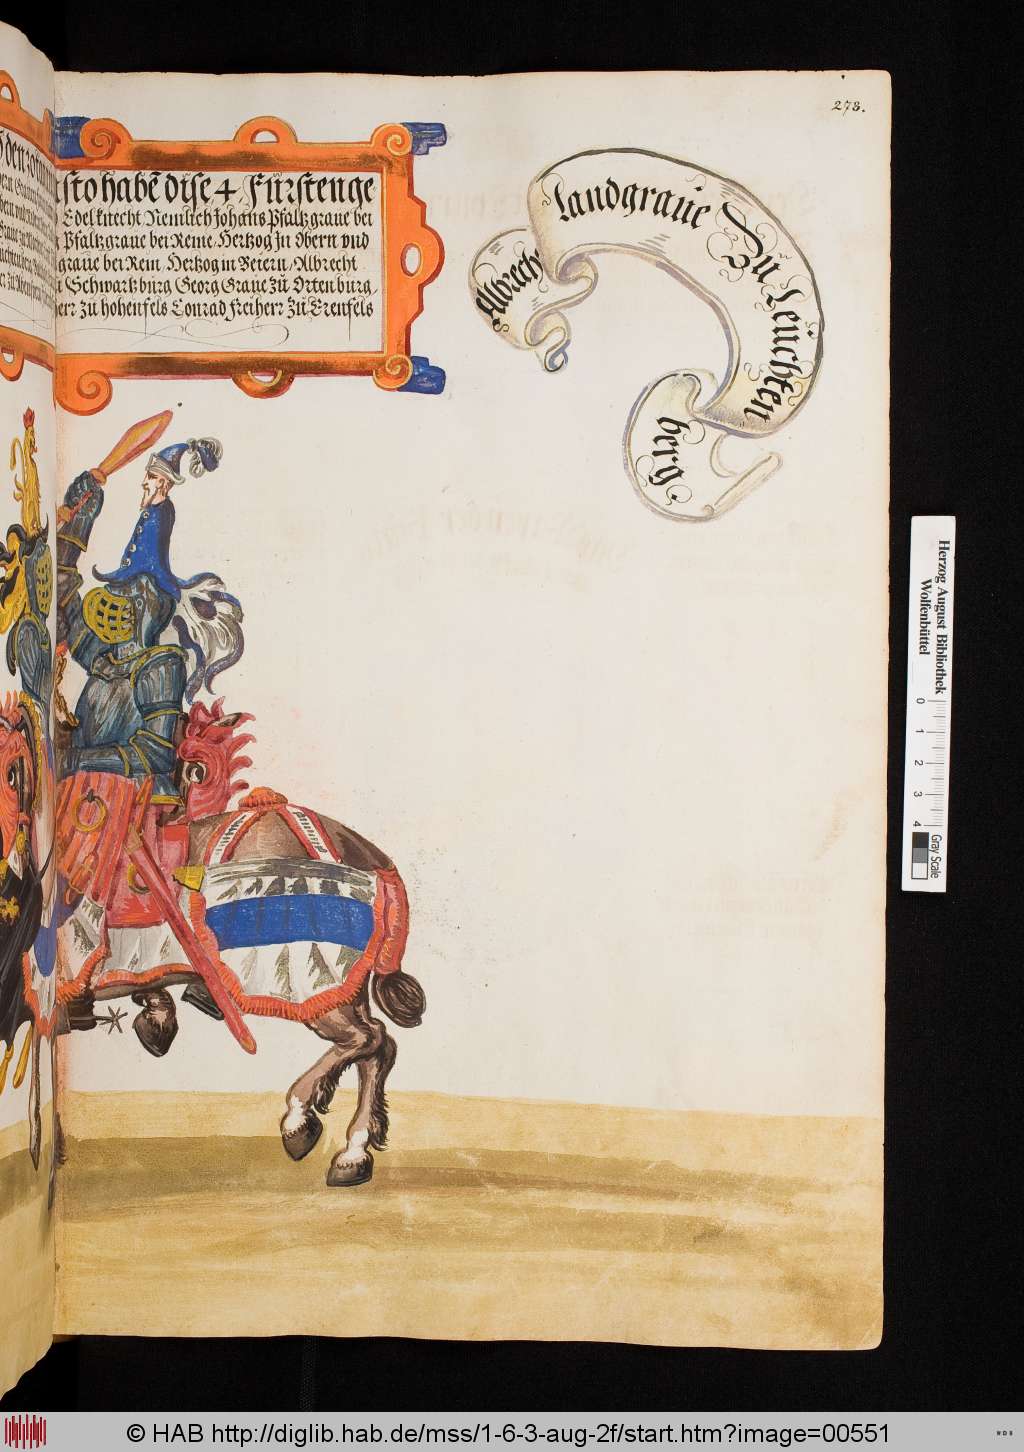 273.
sto habē dise 4 Fürsten ge
Edel knecht Nemlich Johans Pfaltzgraue bei
Pfaltzgraue bei Reine Hertzog jn Obern vnd
graue bei Rein Hertzog in Beiern Albrecht
Schwartzburg Georg Graue zů Ortenburg
herr zu hohenfels Conrad Freiherr zu Erenfels
Albrecht
Landgraue Zu Leüchten
berg.
Herzog August Bibliothek
Wolfenbüttel
0 1 2 3 4
Gray Scale
© HAB http://diglib.hab.de/mss/1-6-3-aug-2f/start.htm?image=00551